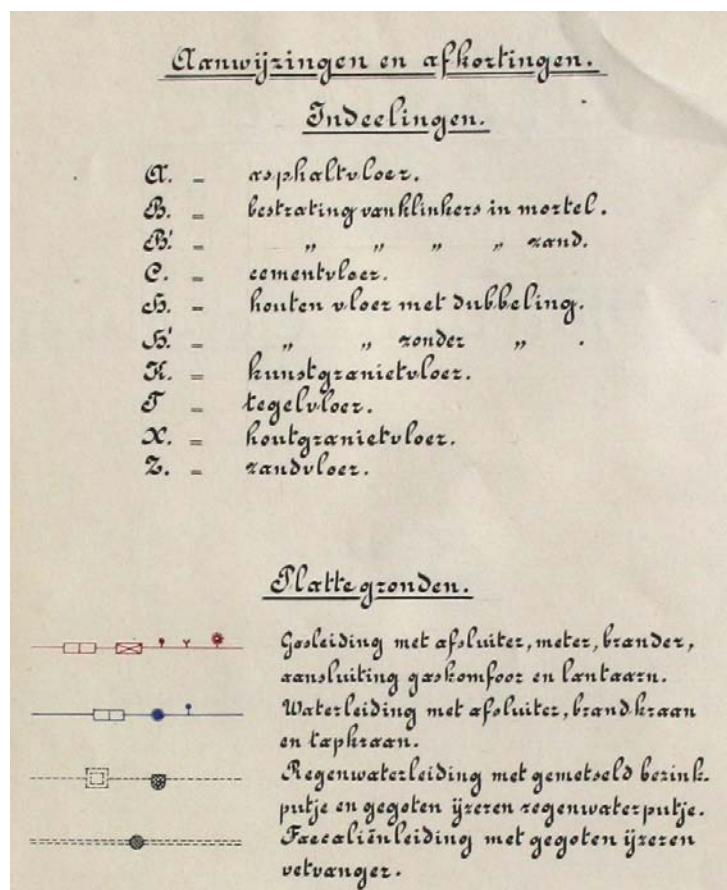 Aanwijzingen en afkortingen.
Indeelingen.
A. = asphaltvloer.
B. = bestrating van klinkers in mortel.
B.' = „ „ „ „ zand.
C. = cementvloer.
H. = houten vloer met dubbeling.
H.' = „ „ zonder „ .
K. = kunstgranietvloer.
T = tegelvloer.
X. = houtgranietvloer.
Z. = zandvloer.
Platte gronden.
Gasleiding met afsluiter, meter, brander,
aansluiting gaskomfoor en lantaarn.
Waterleiding met afsluiter, brandkraan
en tapkraan.
Regenwaterleiding met gemetseld bezink-
putje en gegoten ijzeren regenwaterputje.
Faecaliënleiding met gegoten ijzeren
vetvanger.